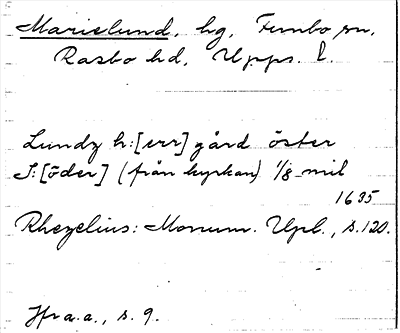 Marielund, hg, Funbo sn,
Rasbo hd, Upps. l.
Lundz h:[err] gård öster
S:[öder] (från kyrkan) 1/8 mil
1635
Rhezelius: Monum. Upl., s. 120.
Jfr a.a., s. 9.